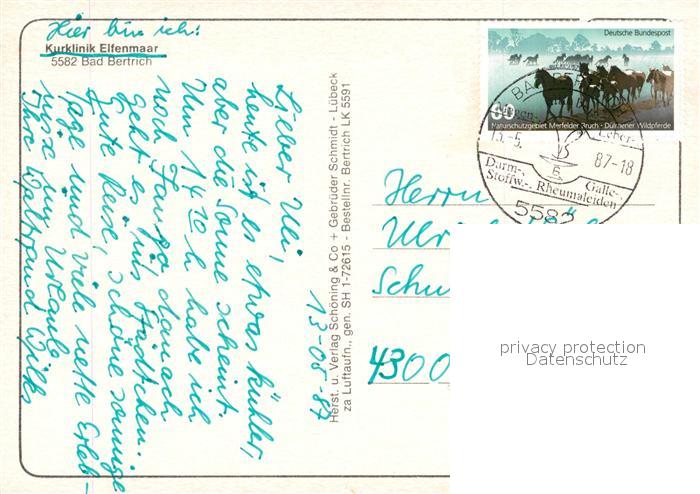 Hier bin ich:
Kurklinik Elfenmaar
5582 Bad Bertrich
Lieber Uli,
heute ist es etwas kühler,
aber die Sonne scheint.
Um 14 10 h habe ich
noch Fango danach
geht es ins Städtchen.
Gute Reise, schöne sonnige
Tage und viele nette Erleb-
nisse im Urlaub
Ihre Waltraud
13-05-87
Herst. u. Verlag Schöning & Co + Gebrüder Schmidt - Lübeck
za Luftaufn., gen. SH 1-72615 - Bestellnr. Bertrich LK 5591
Deutsche Bundespost
60
Naturschutzgebiet Merfelder Bruch - Dülmener Wildpferde
BA
Leber-
13.-5.
87-18
Darm-,
Galle-,
Stoffw.-, Rheumaleiden
5582
Herrn
Schu
4300
privacy protection
Datenschutz